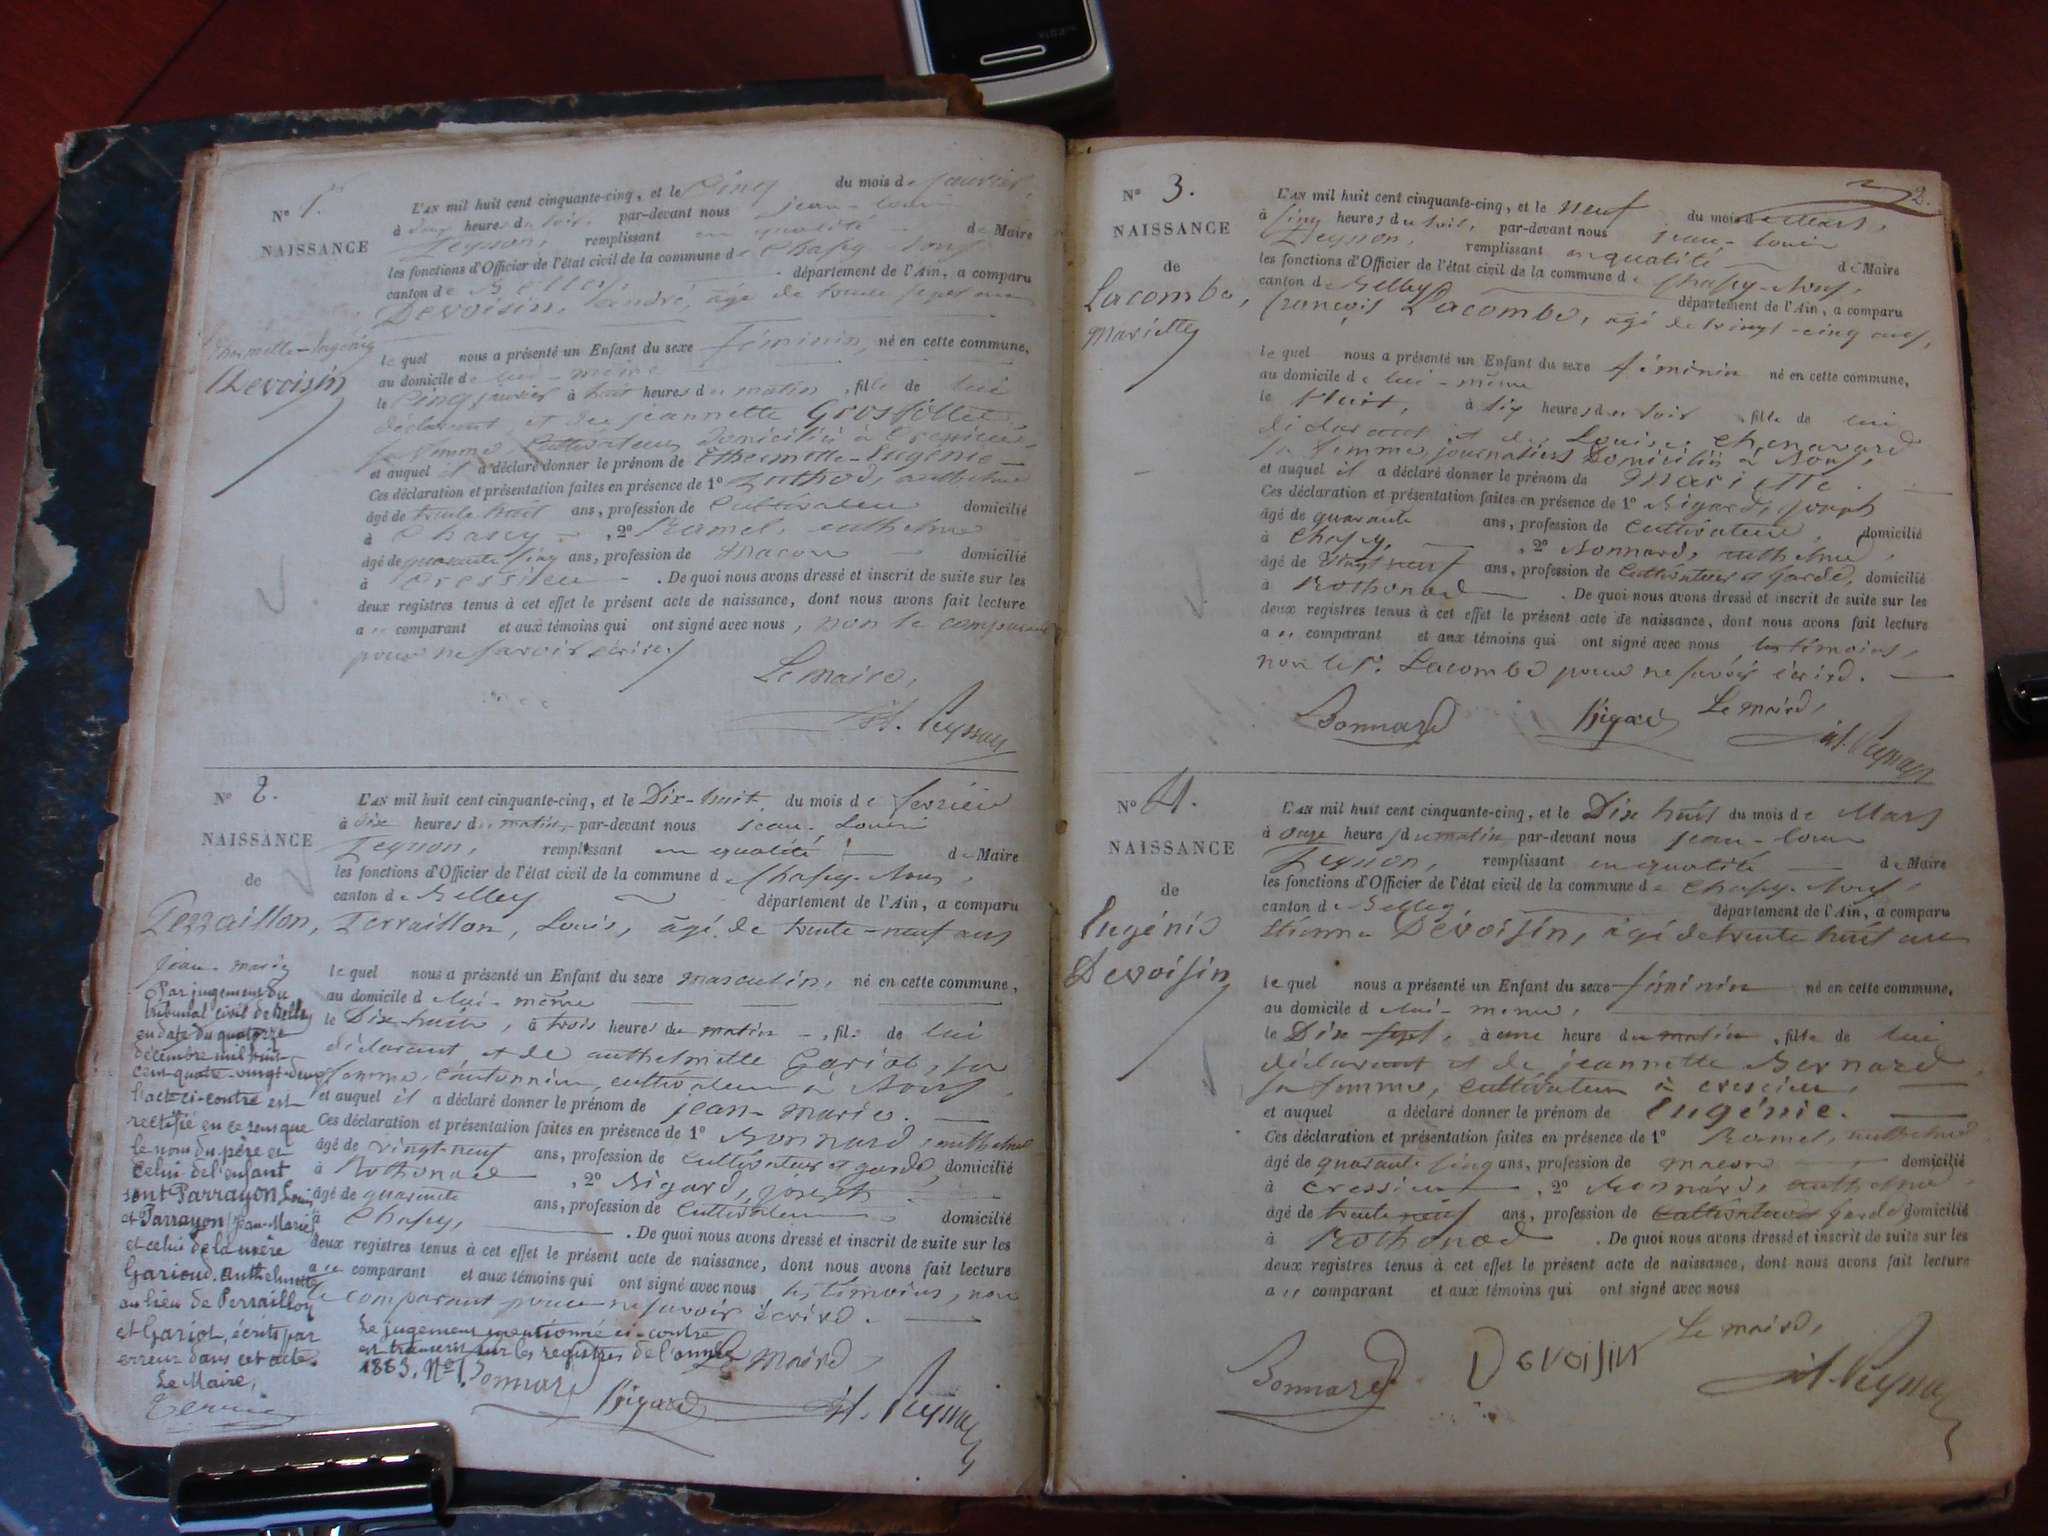 Nº 1.
NAISSANCE
Thermette-Eugénie
Devoisin
L'AN mil huit cent cinquante-cinq, et le Cinq du mois de janvier,
à heures du soir, par-devant nous jean-louis
Peysson, remplissant en qualité de Maire
les fonctions d'Officier de l'état civil de la commune de Chazey-Bons
canton de Belley, département de l'Ain, a comparu
Devoisin, andré, âgé de trente sept ans
le quel nous a présenté un Enfant du sexe féminin, né en cette commune,
au domicile de lui-même
le Cinq janvier à huit heures du matin, fille de lui
déclarant, et de jeannette Grosfillet,
sa femme, Cultivateurs domiciliés à Cressieu,
et auquel il a déclaré donner le prénom de Thermette-Eugénie
Ces déclaration et présentation faites en présence de 1º anthelme
âgé de trente huit ans, profession de Cultivateur domicilié
à Chazey, 2º Ramel, anthelme
âgé de quarante cinq ans, profession de Maçon domicilié
à Cressieu. De quoi nous avons dressé et inscrit de suite sur les
deux registres tenus à cet effet le présent acte de naissance, dont nous avons fait lecture
au comparant et aux témoins qui ont signé avec nous, non le comparant
pour ne savoir écrire.
Le maire,
Peysson
Nº 2.
NAISSANCE
de
Perraillon,
jean-marie
L'AN mil huit cent cinquante-cinq, et le Dix-huit du mois de fevrier
à dix heures du matin, par-devant nous jean-Louis
Peysson, remplissant en qualité de Maire
les fonctions d'Officier de l'état civil de la commune de Chazey-Bons,
canton de Belley département de l'Ain, a comparu
Perraillon, Louis, âgé de trente-neuf ans
le quel nous a présenté un Enfant du sexe masculin, né en cette commune,
au domicile de lui-même
le Dix-huit, à trois heures du matin, fils de lui
déclarant, et de anthelmette Gariot, sa
femme, cultivateurs à Bons,
et auquel il a déclaré donner le prénom de jean-marie.
Ces déclaration et présentation faites en présence de 1º Bonnard, anthelme
âgé de vingt-neuf ans, profession de Cultivateur et garde, domicilié
à Rothonod, 2º Rigard, joseph
âgé de quarante ans, profession de Cultivateur domicilié
à Chazey, . De quoi nous avons dressé et inscrit de suite sur les
deux registres tenus à cet effet le présent acte de naissance, dont nous avons fait lecture
au comparant et aux témoins qui ont signé avec nous les témoins, non
le comparant pour ne savoir écrire.
Par jugement du
tribunal civil de Belley
en date du quatorze
décembre mil huit-
cent-quatre-vingt-deux
l'acte ci-contre est
rectifié en ce sens que
le nom du père et
celui de l'enfant
sont Parrayon Louis
et Parrayon Jean-Marie
et celui de la mère
Garioud anthelmette
au lieu de Perraillon
et Gariot, écrits par
erreur dans cet acte.
Le Maire,
Le jugement mentionné ci-contre
est transcrit sur les registres de l'année
1883, Nº 1.
Le maire
Bonnard Rigard Peysson
2.
Nº 3.
NAISSANCE
de
Lacombe,
Mariette
L'AN mil huit cent cinquante-cinq, et le neuf du mois de Mars,
à cinq heures du soir, par-devant nous jean-louis
Peysson, remplissant en qualité de Maire
les fonctions d'Officier de l'état civil de la commune de Chazey-Bons,
canton de Belley département de l'Ain, a comparu
françois Lacombe, âgé de vingt-cinq ans,
le quel nous a présenté un Enfant du sexe féminin né en cette commune,
au domicile de lui-même
le huit, à six heures du soir, fille de lui
déclarant et de Louise Chenavard
sa femme, journaliers Domiciliés à Bons,
et auquel il a déclaré donner le prénom de Mariette
Ces déclaration et présentation faites en présence de 1º Rigard, joseph
âgé de quarante ans, profession de Cultivateur, domicilié
à Chazey, 2º Bonnard, anthelme,
âgé de vingt neuf ans, profession de Cultivateur et garde, domicilié
à Rothonod. De quoi nous avons dressé et inscrit de suite sur les
deux registres tenus à cet effet le présent acte de naissance, dont nous avons fait lecture
au comparant et aux témoins qui ont signé avec nous les témoins,
non le sr. Lacombe pour ne savoir écrire.
Le maire,
Bonnard Rigard Peysson
Nº 4.
NAISSANCE
de
Eugénie
Devoisin
L'AN mil huit cent cinquante-cinq, et le Dix huit du mois de Mars
à onze heures du matin par-devant nous jean-louis
Peysson, remplissant en qualité de Maire
les fonctions d'Officier de l'état civil de la commune de Chazey-Bons,
canton de Belley département de l'Ain, a comparu
Etienne Devoisin, âgé de trente huit ans
le quel nous a présenté un Enfant du sexe féminin né en cette commune,
au domicile de lui-même,
le Dix sept, à une heure du matin, fille de lui
déclarant et de jeannette Bernard
sa femme, cultivateurs à cressieu,
et auquel a déclaré donner le prénom de Eugénie.
Ces déclaration et présentation faites en présence de 1º Ramel, anthelme
âgé de quarante cinq ans, profession de maçon domicilié
à cressieu, 2º Bonnard, anthelme,
âgé de trente neuf ans, profession de Cultivateur garde domicilié
à Rothonod. De quoi nous avons dressé et inscrit de suite sur les
deux registres tenus à cet effet le présent acte de naissance, dont nous avons fait lecture
au comparant et aux témoins qui ont signé avec nous
Le maire,
Bonnard Devoisin Peysson